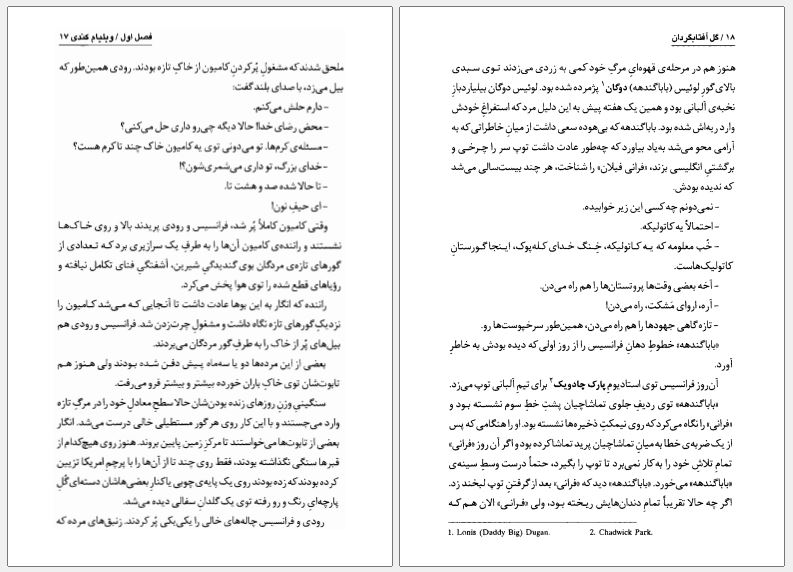 فصل اول / ویلیام کندی ۱۷
ملحق شدند که مشغولِ پُر کردنِ کامیون از خاکِ تازه بودند. رودی همین‌طور که
بیل می‌زد، با صدای بلند گفت:
- دارم حلش می‌کنم.
- محض رضای خدا! حالا دیگه چی‌رو داری حل می‌کنی؟
- مسئله‌ی کرم‌ها. تو می‌دونی توی یه کامیون خاک چند تا کرم هست؟
- خدای بزرگ، تو داری می‌شمری‌شون؟!
- تا حالا شده صد و هشت تا.
- ای حیفِ نون!
وقتی کامیون کاملاً پُر شد، فرانسیس و رودی پریدند بالا و روی خاک‌ها
نشستند و راننده‌ی کامیون آن‌ها را به طرفِ یک سرازیری برد که تعدادی از
گورهای تازه‌ی مردگان بوی گندیدگیِ شیرین، آشفتگیِ فنای تکامل نیافته و
رؤیاهای قطع شده را توی هوا پخش می‌کرد.
راننده که انگار به این بوها عادت داشت تا آنجایی که می‌شد کامیون را
نزدیکِ گورهای تازه نگاه داشت و مشغولِ چرت‌زدن شد. فرانسیس و رودی هم
بیل‌های پُر از خاک را به طرفِ گور مردگان می‌بردند.
بعضی از این مرده‌ها دو یا سه‌ماه پیش دفن شده بودند ولی هنوز هم
تابوت‌شان توی خاکِ باران خورده بیشتر و بیشتر فرو می‌رفت.
سنگینیِ وزنِ روزهای زنده بودن‌شان حالا سطحِ معادلِ خود را در مرگِ تازه
وارد می‌جستند و با این کار روی هر گور مستطیلی خالی درست می‌شد. انگار
بعضی از تابوت‌ها می‌خواستند تا مرکزِ زمین پایین بروند. هنوز روی هیچ‌کدام از
قبرها سنگی نگذاشته بودند، فقط روی چند تا از آن‌ها را با پرچمِ امریکا تزیین
کرده بودند که زده بودند روی یک پایه‌ی چوبی یا کنارِ بعضی‌هاشان دسته‌ای گُلِ
پارچه‌ایِ رنگ و رو رفته توی یک گلدانِ سفالی دیده می‌شد.
رودی و فرانسیس چاله‌های خالی را یکی‌یکی پُر کردند. زنبق‌های مرده که
۱۸ / گل آفتابگردان
هنوز هم در مرحله‌ی قهوه‌ایِ مرگِ خود کمی به زردی می‌زدند توی سبدی
بالای گورِ لوئیس (باباگنده‌هه) دوگان۱ پژمرده شده بود. لوئیس دوگان بیلیاردبازِ
نخبه‌ی آلبانی بود و همین یک هفته پیش به این دلیل مرد که استفراغِ خودش
وارد ریه‌اش شده بود. باباگنده‌هه که بی‌هوده سعی داشت از میانِ خاطراتی که به
آرامی محو می‌شد به‌یاد بیاورد که چه‌طور عادت داشت توپ سر را چرخی و
برگشتیِ انگلیسی بزند، «فرانی فیلان» را شناخت، هر چند بیست‌سالی می‌شد
که ندیده بودش.
- نمی‌دونم چه کسی این زیر خوابیده.
- احتمالاً یه کاتولیکه.
- خُب معلومه که یه کاتولیکه، خِنگ خدای کله‌پوک، اینجا گورستانِ
کاتولیک‌هاست.
- آخه بعضی وقت‌ها پروتستان‌ها را هم راه می‌دن.
- آره، اروای مَشکت، راه می‌دن!
- تازه گاهی جهودها را هم راه می‌دن، همین‌طور سرخپوست‌ها رو.
«باباگنده‌هه» خطوطِ دهانِ فرانسیس را از روز اولی که دیده بودش به خاطرِ
آورد.
آن‌روز فرانسیس توی استادیومِ پارک چادویک۲ برای تیمِ آلبانی توپ می‌زد.
«باباگنده‌هه» توی ردیفِ جلوی تماشاچیان پشتِ خطِ سوم نشسته بود و
«فرانی» را نگاه می‌کرد که روی نیمکتِ ذخیره‌ها نشسته بود. او را هنگامی که پس
از یک ضربه‌ی خطا به میانِ تماشاچیان پرید تماشا کرده بود و اگر آن روز «فرانی»
تمامِ تلاشِ خود را به کار نمی‌برد تا توپ را بگیرد، حتماً درست وسطِ سینه‌ی
«باباگنده‌هه» می‌خورد. «باباگنده‌هه» دید که «فرانی» بعد از گرفتنِ توپ لبخند زد.
اگر چه حالا تقریباً تمامِ دندان‌هایش ریخته بود، ولی «فرانی» الان هم که
1. Lonis (Daddy Big) Dugan. 2. Chadwick Park.